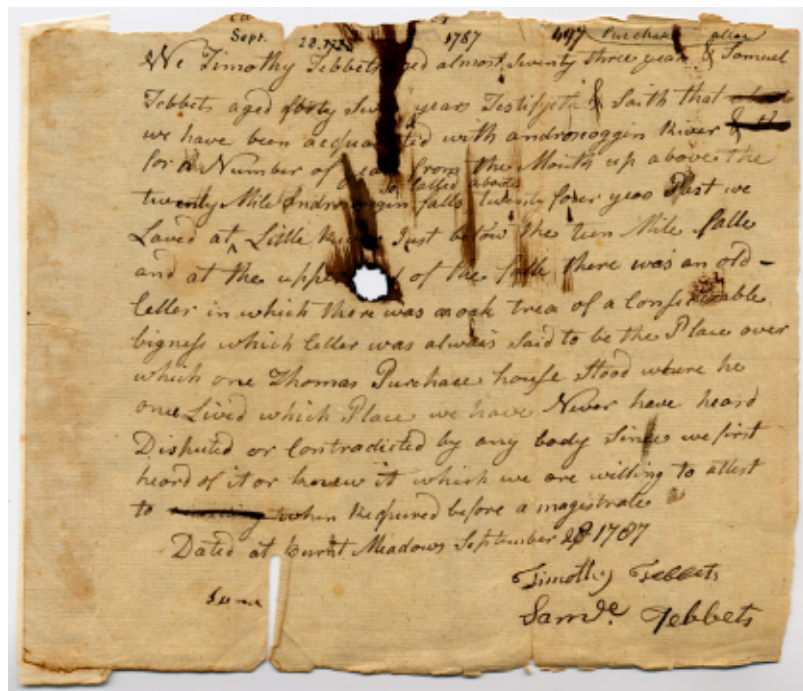 Sept. 28, 1788 1787 497 Purchase
We Timothy Tebbets aged almost seventy three years & Samuel
Tebbets aged forty years Testifyeth & Saith that
we have been acquainted with androscoggin River
for a Number of years from the Mouth up above the
twenty Mile falls twenty fouer year Past we
so called above
Laved at Little River Just below the ten Mile falls
and at the upper of the falls there was an old -
Celler in which there was a oak trea of a Considerable
bigness which Celler was always Said to be the Place over
which one Thomas Purchase house Stood where he
once Lived which Place we have Never have heard
Disputed or Contradicted by any body Since we first
heard of it or knew it which we are willing to attest
to when Required before a magistrate
Dated at Burnt Meadows September 28 1787
Timothy Tebbets
Saml. Tebbets